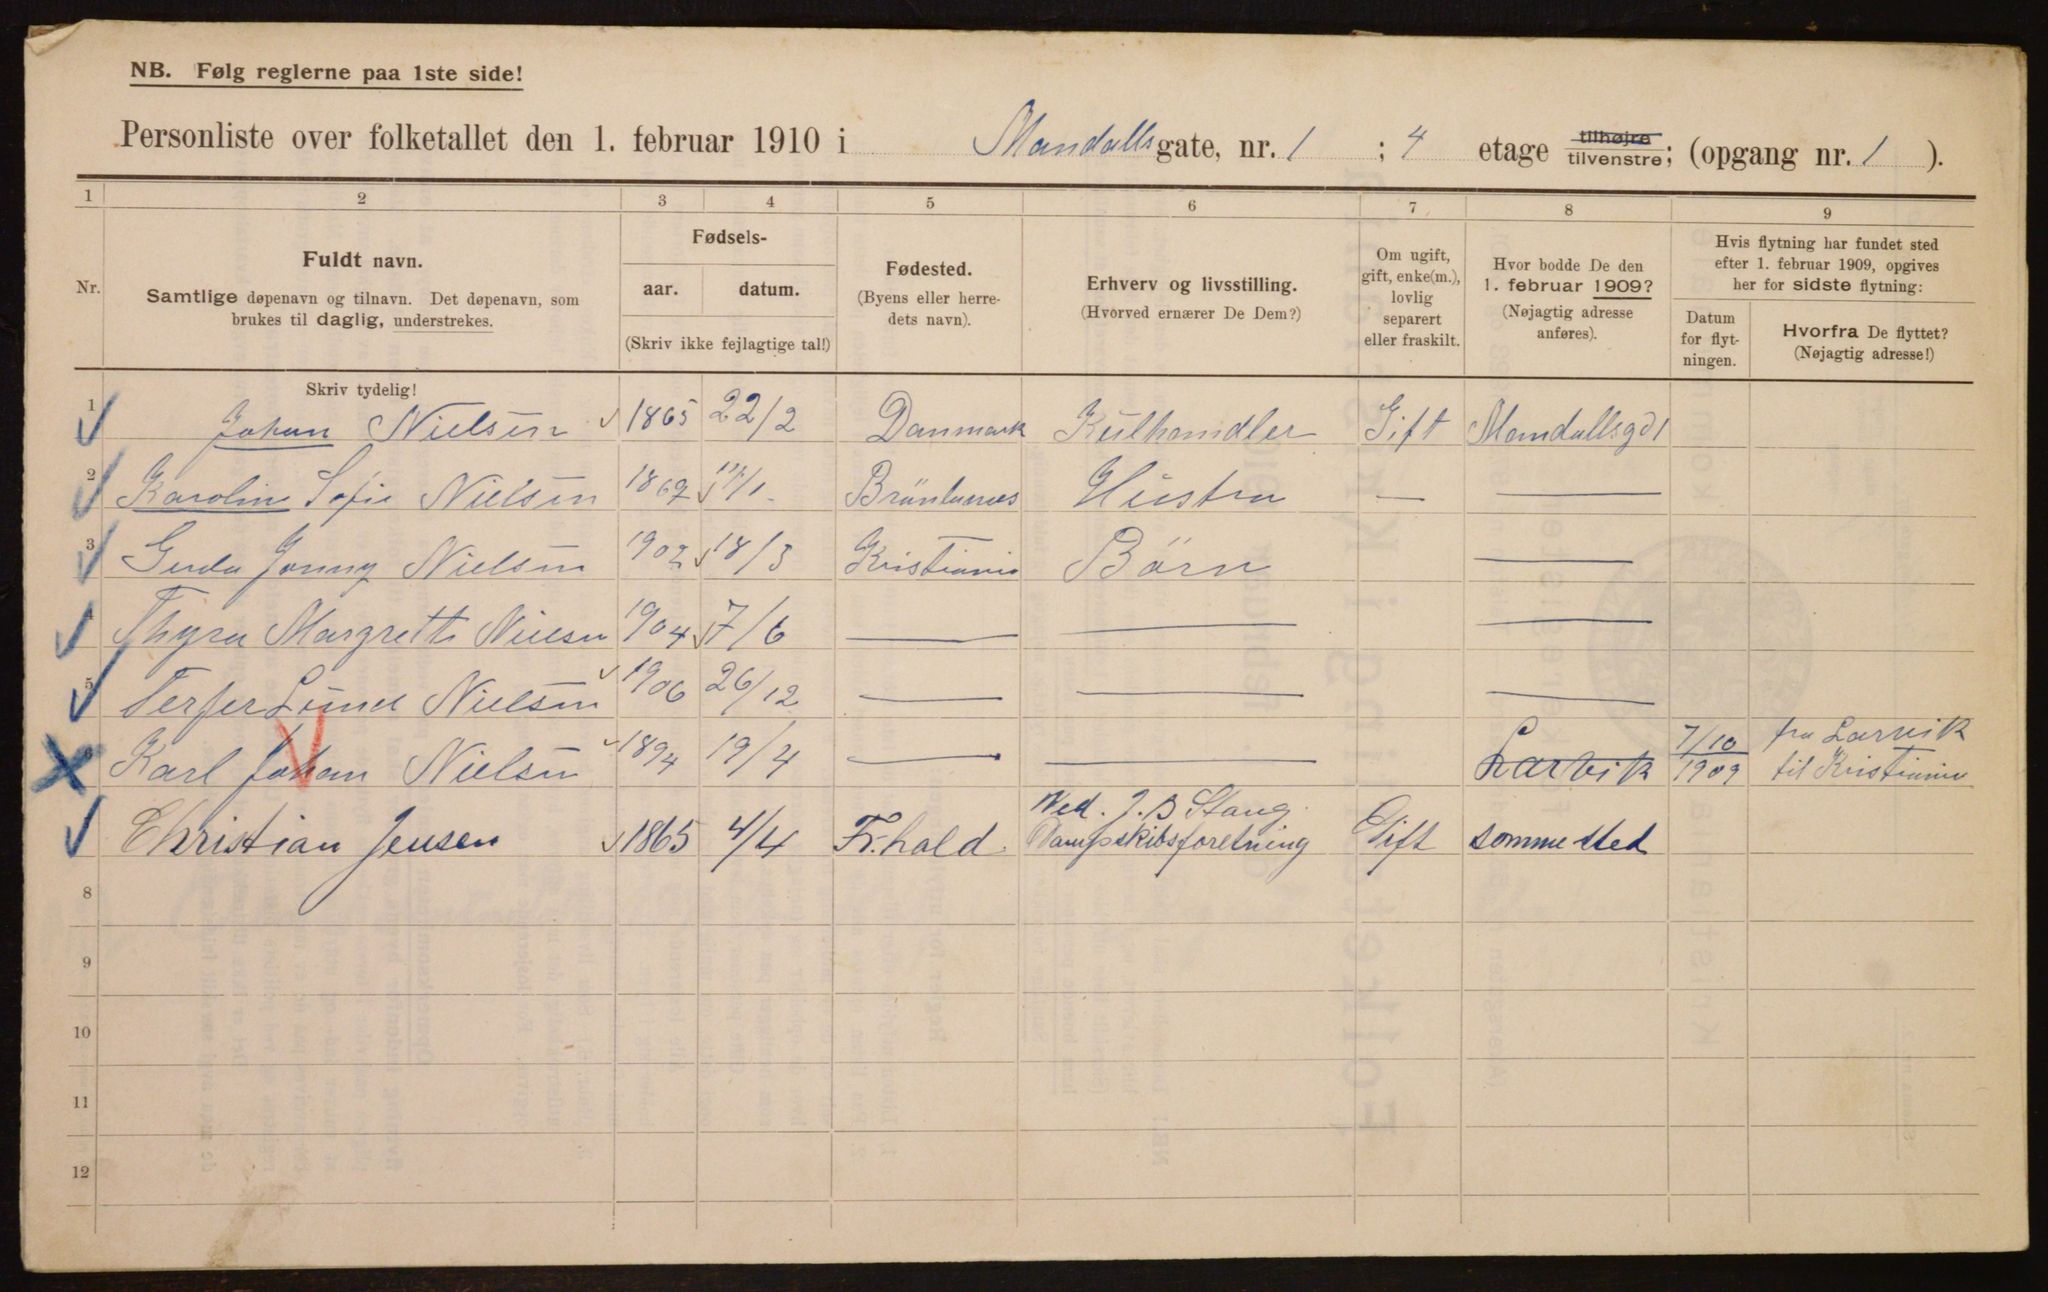 NB. Følg reglerne paa 1ste side!
Personliste over folketallet den 1. februar 1910 i Mandallsgate, nr. 1 ; 4 etage tilhøjre tilvenstre; (opgang nr. 1 ).
1 2 3 4 5 6 7 8 9
Nr.
Fuldt navn.
Samtlige døpenavn og tilnavn. Det døpenavn, som
brukes til daglig, understrekes.
Fødsels-
aar. datum.
(Skriv ikke fejlagtige tal!)
Fødested.
(Byens eller herre-
dets navn).
Erhverv og livsstilling.
(Hvorved ernærer De Dem?)
Om ugift,
gift, enke(m.),
lovlig
separert
eller fraskilt.
Hvor bodde De den
1. februar 1909?
(Nøjagtig adresse
anføres).
Hvis flytning har fundet sted
efter 1. februar 1909, opgives
her for sidste flytning:
Datum
for flyt-
ningen.
Hvorfra De flyttet?
(Nøjagtig adresse!)
Skriv tydelig!
1 Johan Nielsen 1865 22/2 Danmark Kulhandler Gift Mandallsgd 1
2 Karolin Sofie Nielsen 1867 11/1 Hustru — —
3 Jonny Nielsen 1902 18/3 Kristiania Børn —
4 Thyra Margrethe Nielsen 1904 7/6 — — —
5 Lund Nielsen 1906 26/12 — — —
6 Karl Johan Nielsen 1894 19/4 — — Larvik 7/10 1909 fra Larvik
til Kristiania
Christian Jensen 1865 4/4 Fr.hald Ved. J. B Stang
Dampskibsforetning Gift somme sted
8
9
10
11
12